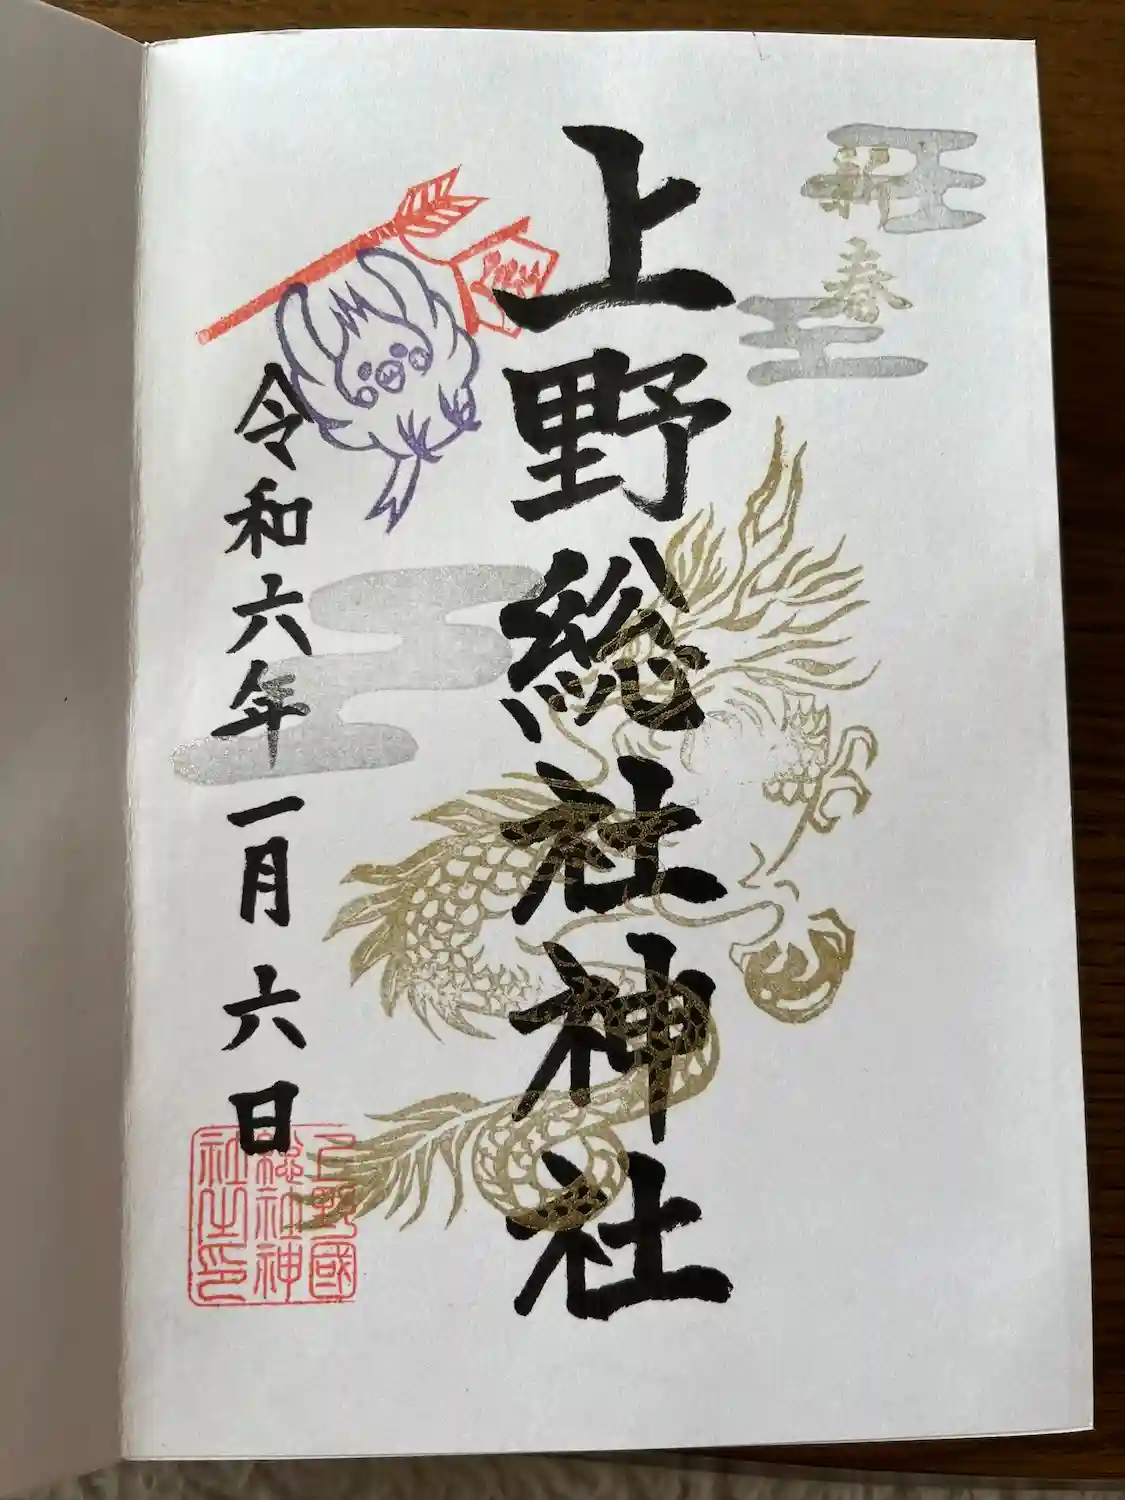 新春
上野総社神社
令和六年一月六日
上野國
総社神
社之印